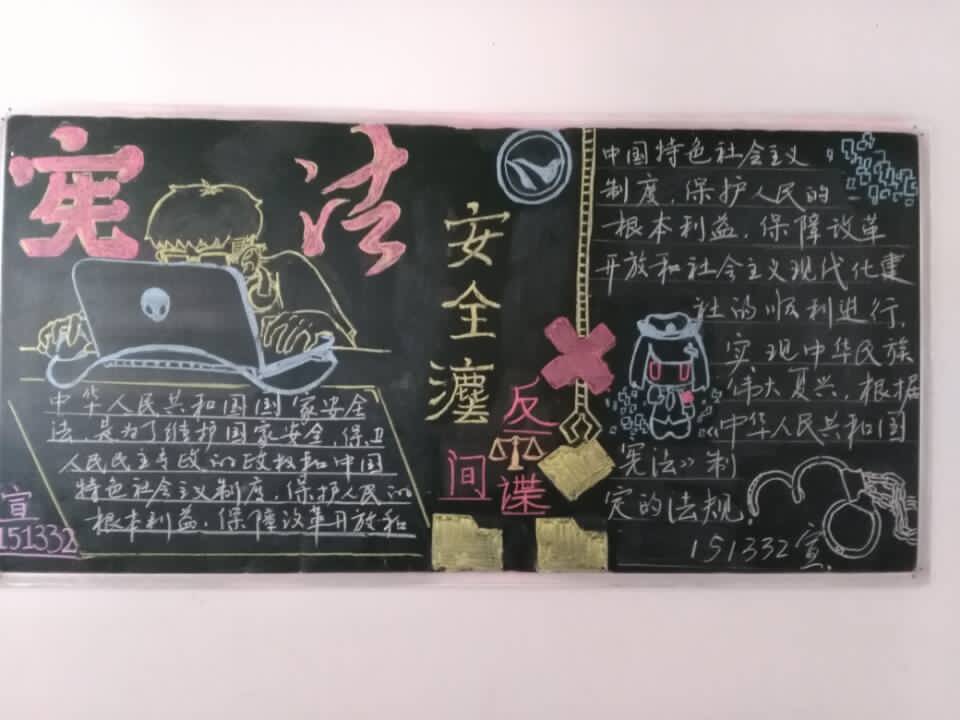 宪法
安全法
反间谍
中华人民共和国国家安全
法,是为了维护国家安全,保卫
人民民主专政的政权和中国
特色社会主义制度,保护人民的
根本利益,保障改革开放和
宣
151332
中国特色社会主义
制度,保护人民的
根本利益,保障改革
开放和社会主义现代化建
社的顺利进行,
实现中华民族
伟大复兴,根据
中华人民共和国
宪法》制
定的法规。
151332宣.